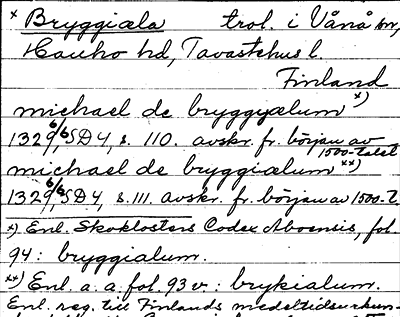 × Bryggiæla trol. i Vånå sn,
Hauho hd, Tavastehus l.
Finland
michael de bryggyælum ×)
1329 6/6 SD 4, s. 110. avskr. fr. början av 1500-talet
michael de bryggiælum ××)
1329 6/6 SD 4, s. 111. avskr. fr. början av 1500-t.
×) Enl. Skoklosters Codex Aboensis, fol.
94: bryggialum.
××) Enl. a. a. fol. 93 v: brykialum.
Enl. reg. till Finlands medeltidsurkun-